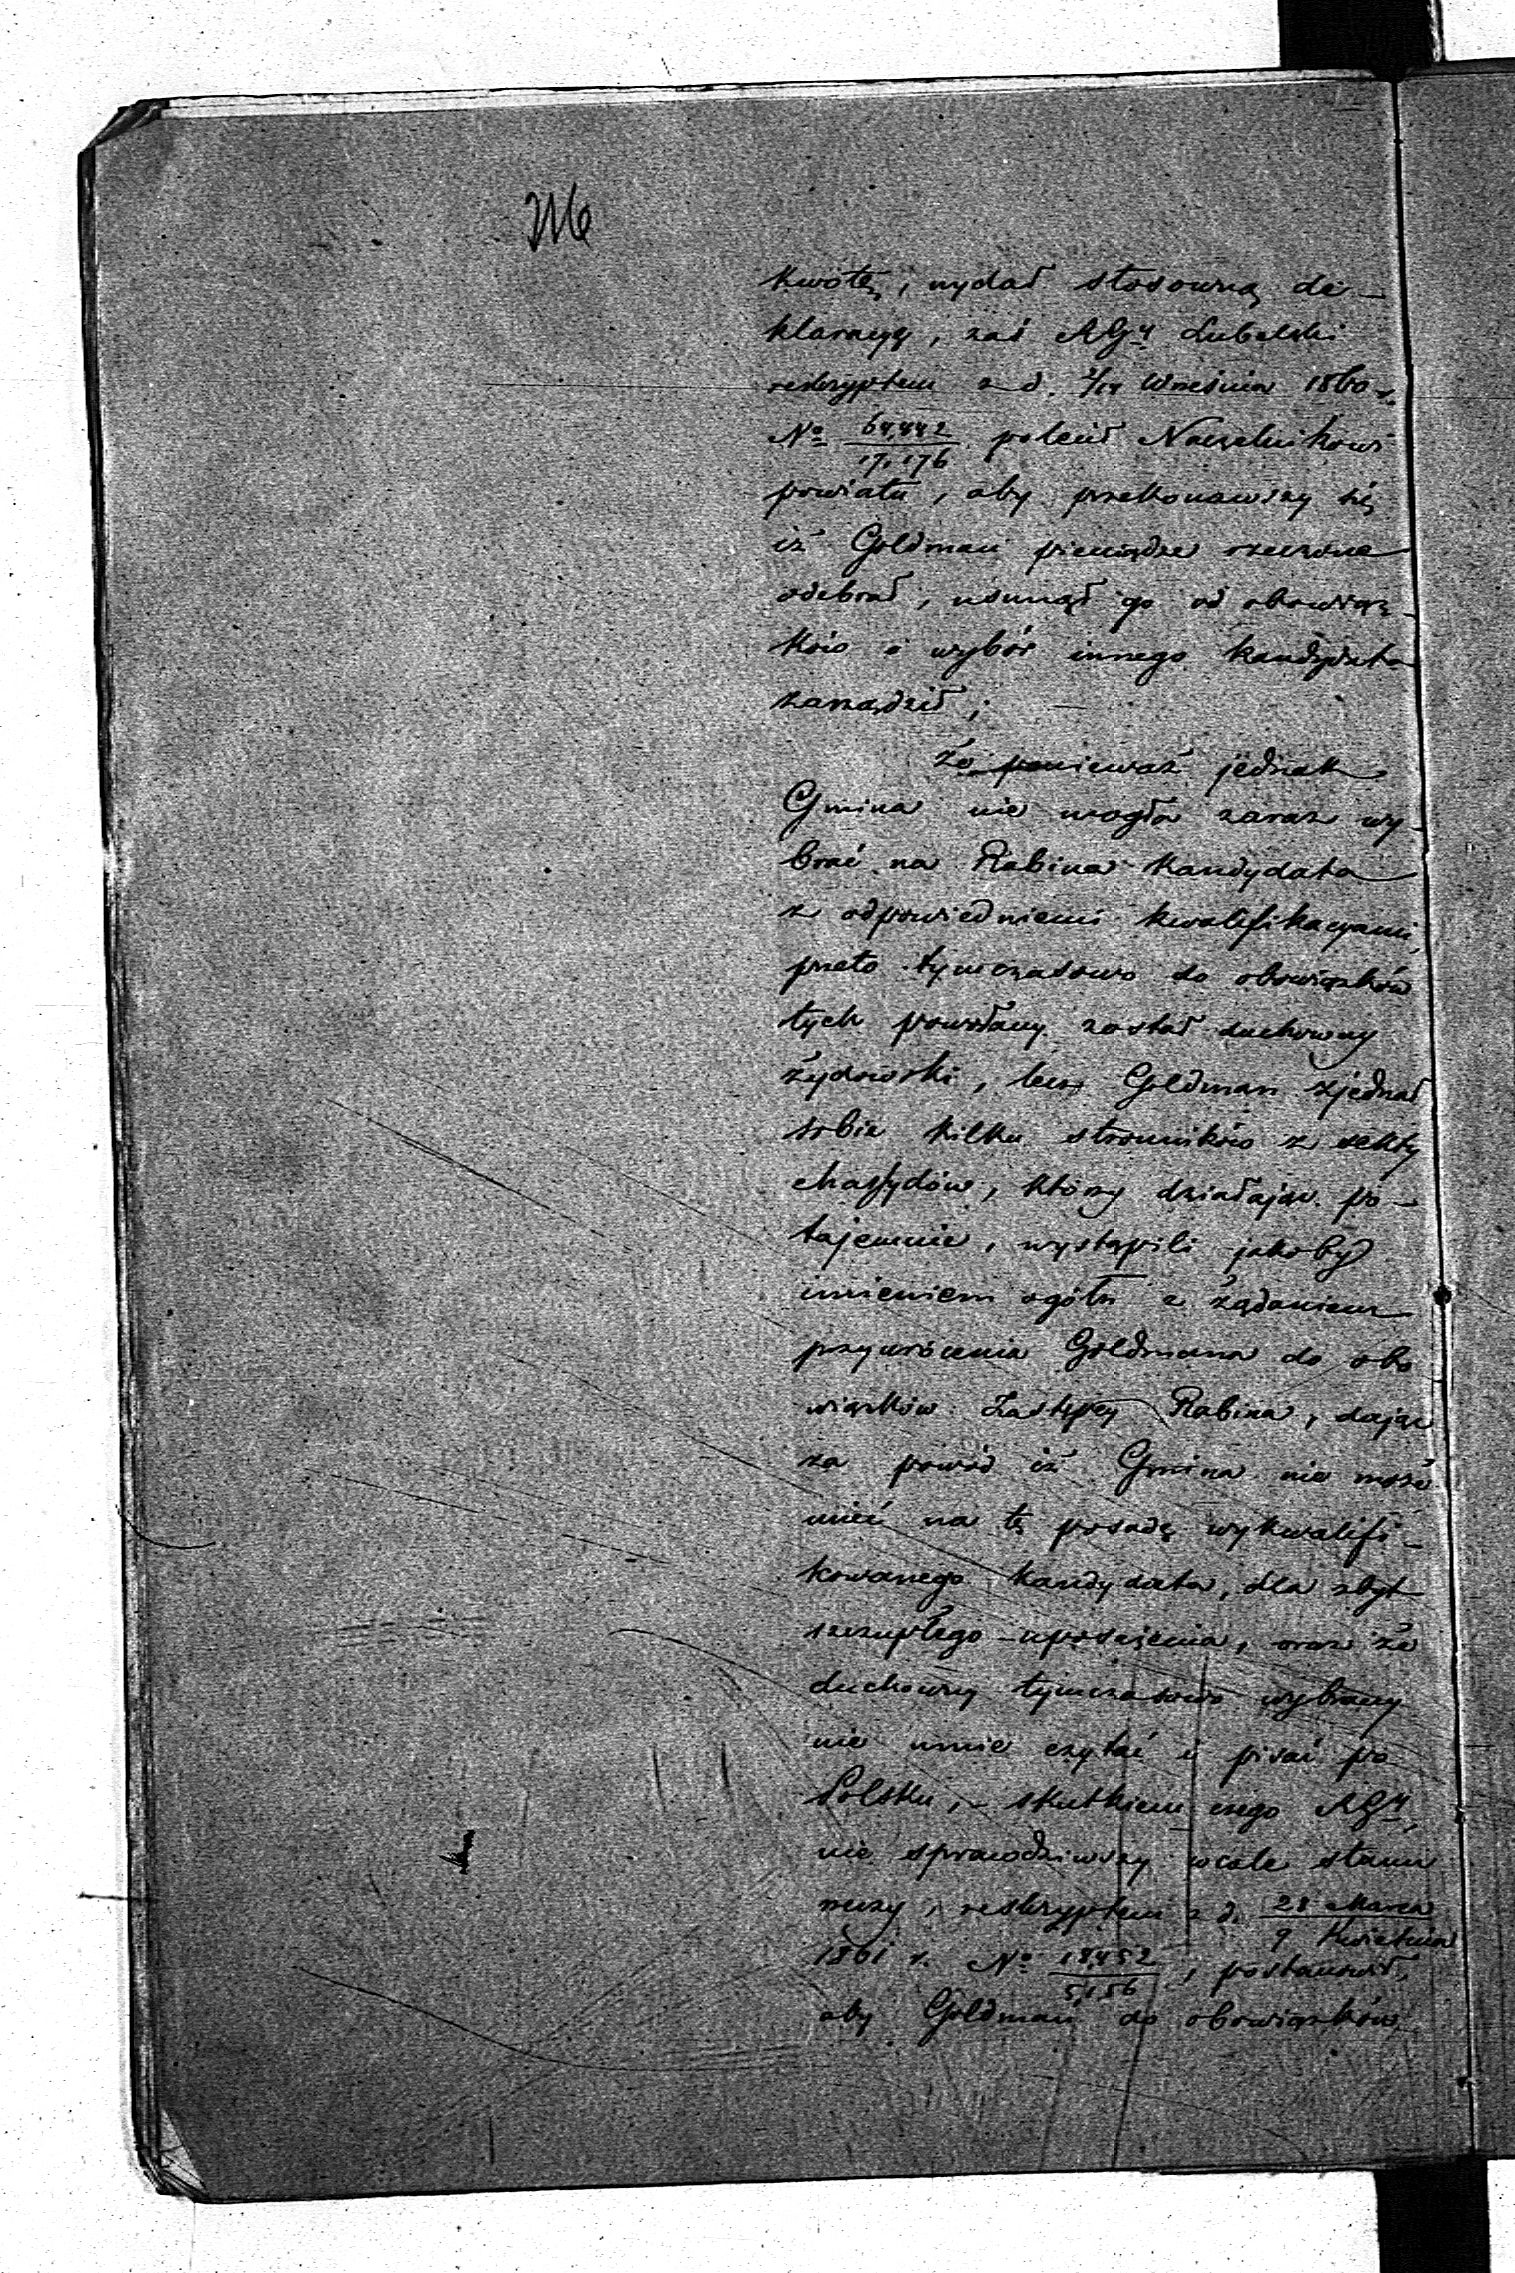 216
kwotę, wydał stosowną de-
klaracyę, zaś RGy Lubelski
reskryptem z d. 2/14 Września 1860 r.
No 64,442/17,176 polecił Naczelnikowi
powiatu, aby przekonawszy się
iż Goldman pieniądze rzeczone
odebrał, usunął go od obowiąz-
ków i wybór innego kandydata
zarządził;
Że ponieważ jednak
Gmina nie mogła zaraz wy-
brać na Rabina kandydata
z odpowiedniemi kwalifikacyami,
przeto tymczasowo do obowiązków
tych powołany został duchowny
żydowski, lecz Goldman zjednał
sobie kilku stronników z sekty
chassydów, którzy działając po-
tajemnie, wystąpili jakoby
imieniem ogółu z żądaniem
przywrócenia Goldmana do obo
wiązków Zastępcy Rabina, dając
za powód iż Gmina nie może
mieć na tę posadę wykwalifi-
kowanego kandydata, dla zbyt
szczupłego uposażenia, oraz że
duchowny tymczasowo wybrany
nie umie czytać i pisać po
Polsku, - skutkiem czego RGy,
nie sprawdziwszy wcale stanu
rzeczy, reskryptem z d. 28 Marca/9 Kwietnia
1861 r. No 18,452/5,156, postanowił,
aby Goldman do obowiązków